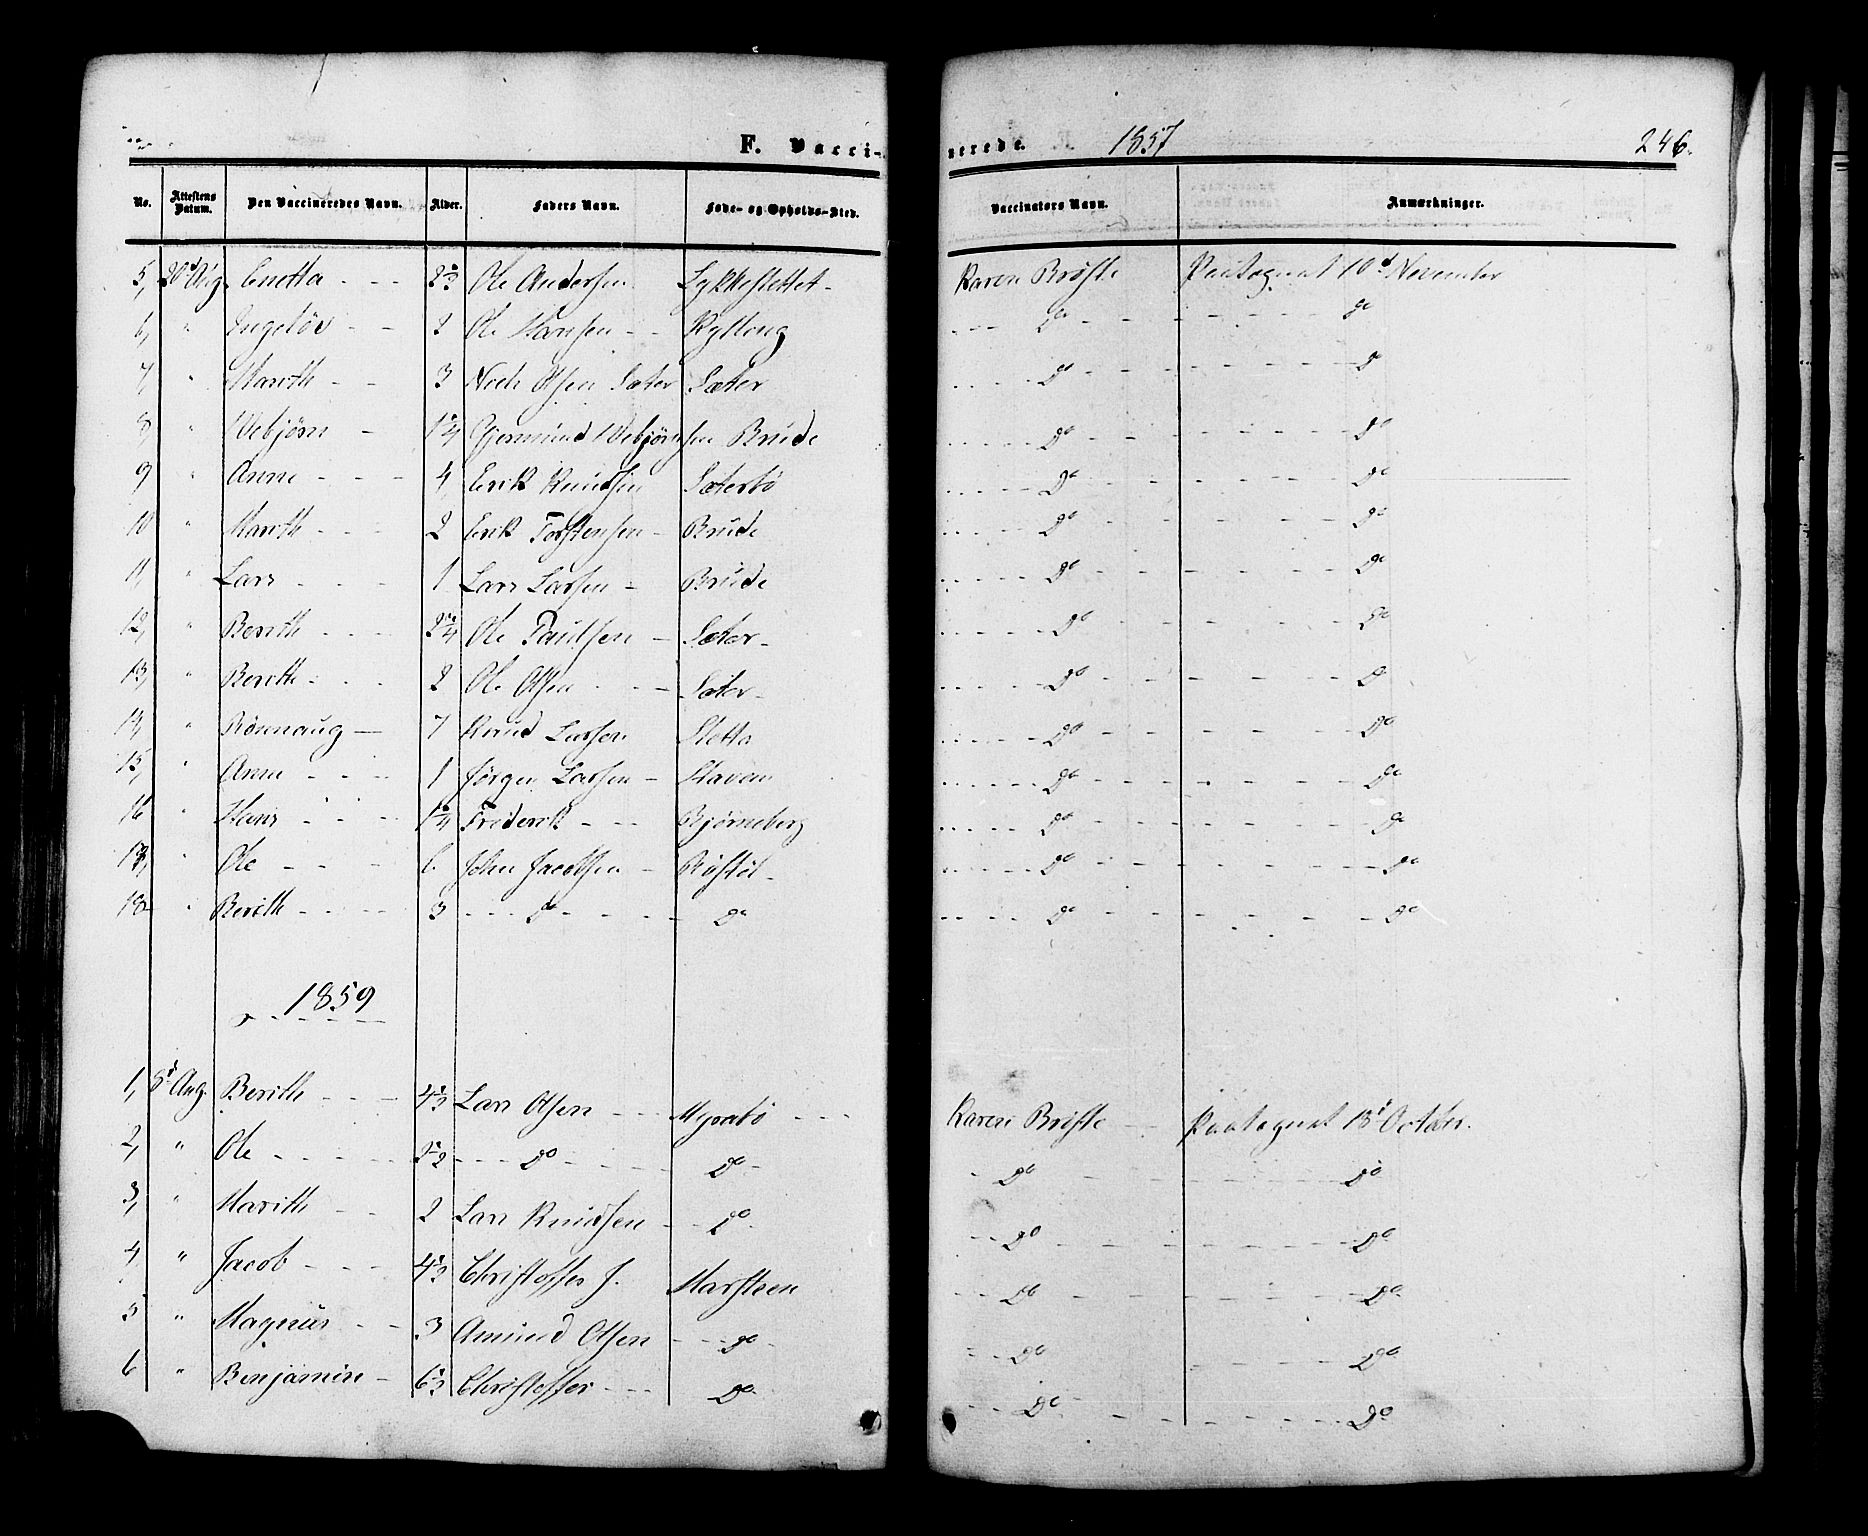 F. Vacci-nerede. 1857 246.
No. Attestens Datum. Den Vaccineredes Navn. Alder. Faders Navn. Føde- og Opholds-Sted. Vaccinators Navn. Anmærkninger.
5, 20d Aug. Enetta - - - 2 1/2 Ole Andersen Lykkeslettet - Karen Brøste Paategnet 10d November
6, " Ingeløv - - 2 Ole Hansen - - Kylling - - - Do - - - - - - Do
7, " Marith - - 3 Ole Olsen Sæter Sæter - - - Do - - - - - - Do
8, " Webjørn - 1 1/4 Gjermund Webjørnsen Brude - - - Do - - - - - - Do
9 " Anne - - - 4 Erik Knudsen Sæterbø - - - Do - - - - - - Do
10 " Marith - - - 2 Erik Torstensen - Brude - - - Do - - - - - - Do
11, " Lars - - - 1 Lars Larsen - Brude - - - Do - - - - - - Do
12, " Berith - - - 2 1/4 Ole Paulsen - Sæter - - - - Do - - - - - - Do
13, " Berith - - - 2 Ole Olsen - - - Sæter - - - - Do - - - - - - Do
14, " Rønnaug - 7 Knud Larsen Sletta - - - Do - - - - - - Do
15, " Anne - - - 1 Jørgen Larsen - Staven - - - Do - - - - - - Do
16 " Hans - - - 1 1/4 Frederik - - Bjørneberg - - - Do - - - - - - Do
17, " Ole - - - 6 John Jacobsen - Røstøl - - - - Do - - - - - - Do
18 " Berith - - - 3 - - - Do - - - Do - - - Do - - - - - - Do
1859
1, 8d Aug. Berith - - - 4 1/2 Lars Olsen - - Myrabø - - - Karen Brøste - Paategnet 13d October.
2, " Ole - - - 2 1/2 - - - Do - - - Do - - Do - - - - Do
3, " Marith - - 2 Lars Knudsen - - Do - - Do - - - - Do
4 " Jacob - - - 4 1/2 Christoffer J. Marsteen - - Do - - - - Do
5 " Magnus - - 3 Amund Olsen - - - Do - - - Do - - - - Do
6 " Benjamin - 6 1/2 Christoffer - - - Do - - Do - - - - Do